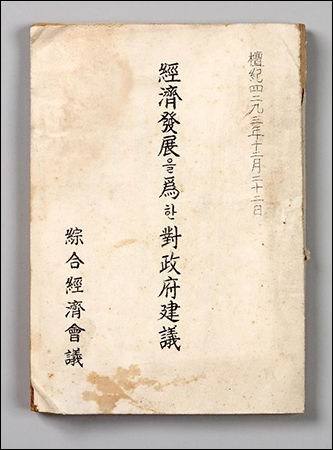 檀紀四二九三年十二月二十二日
經濟發展을爲한對政府建議
綜合經濟會議